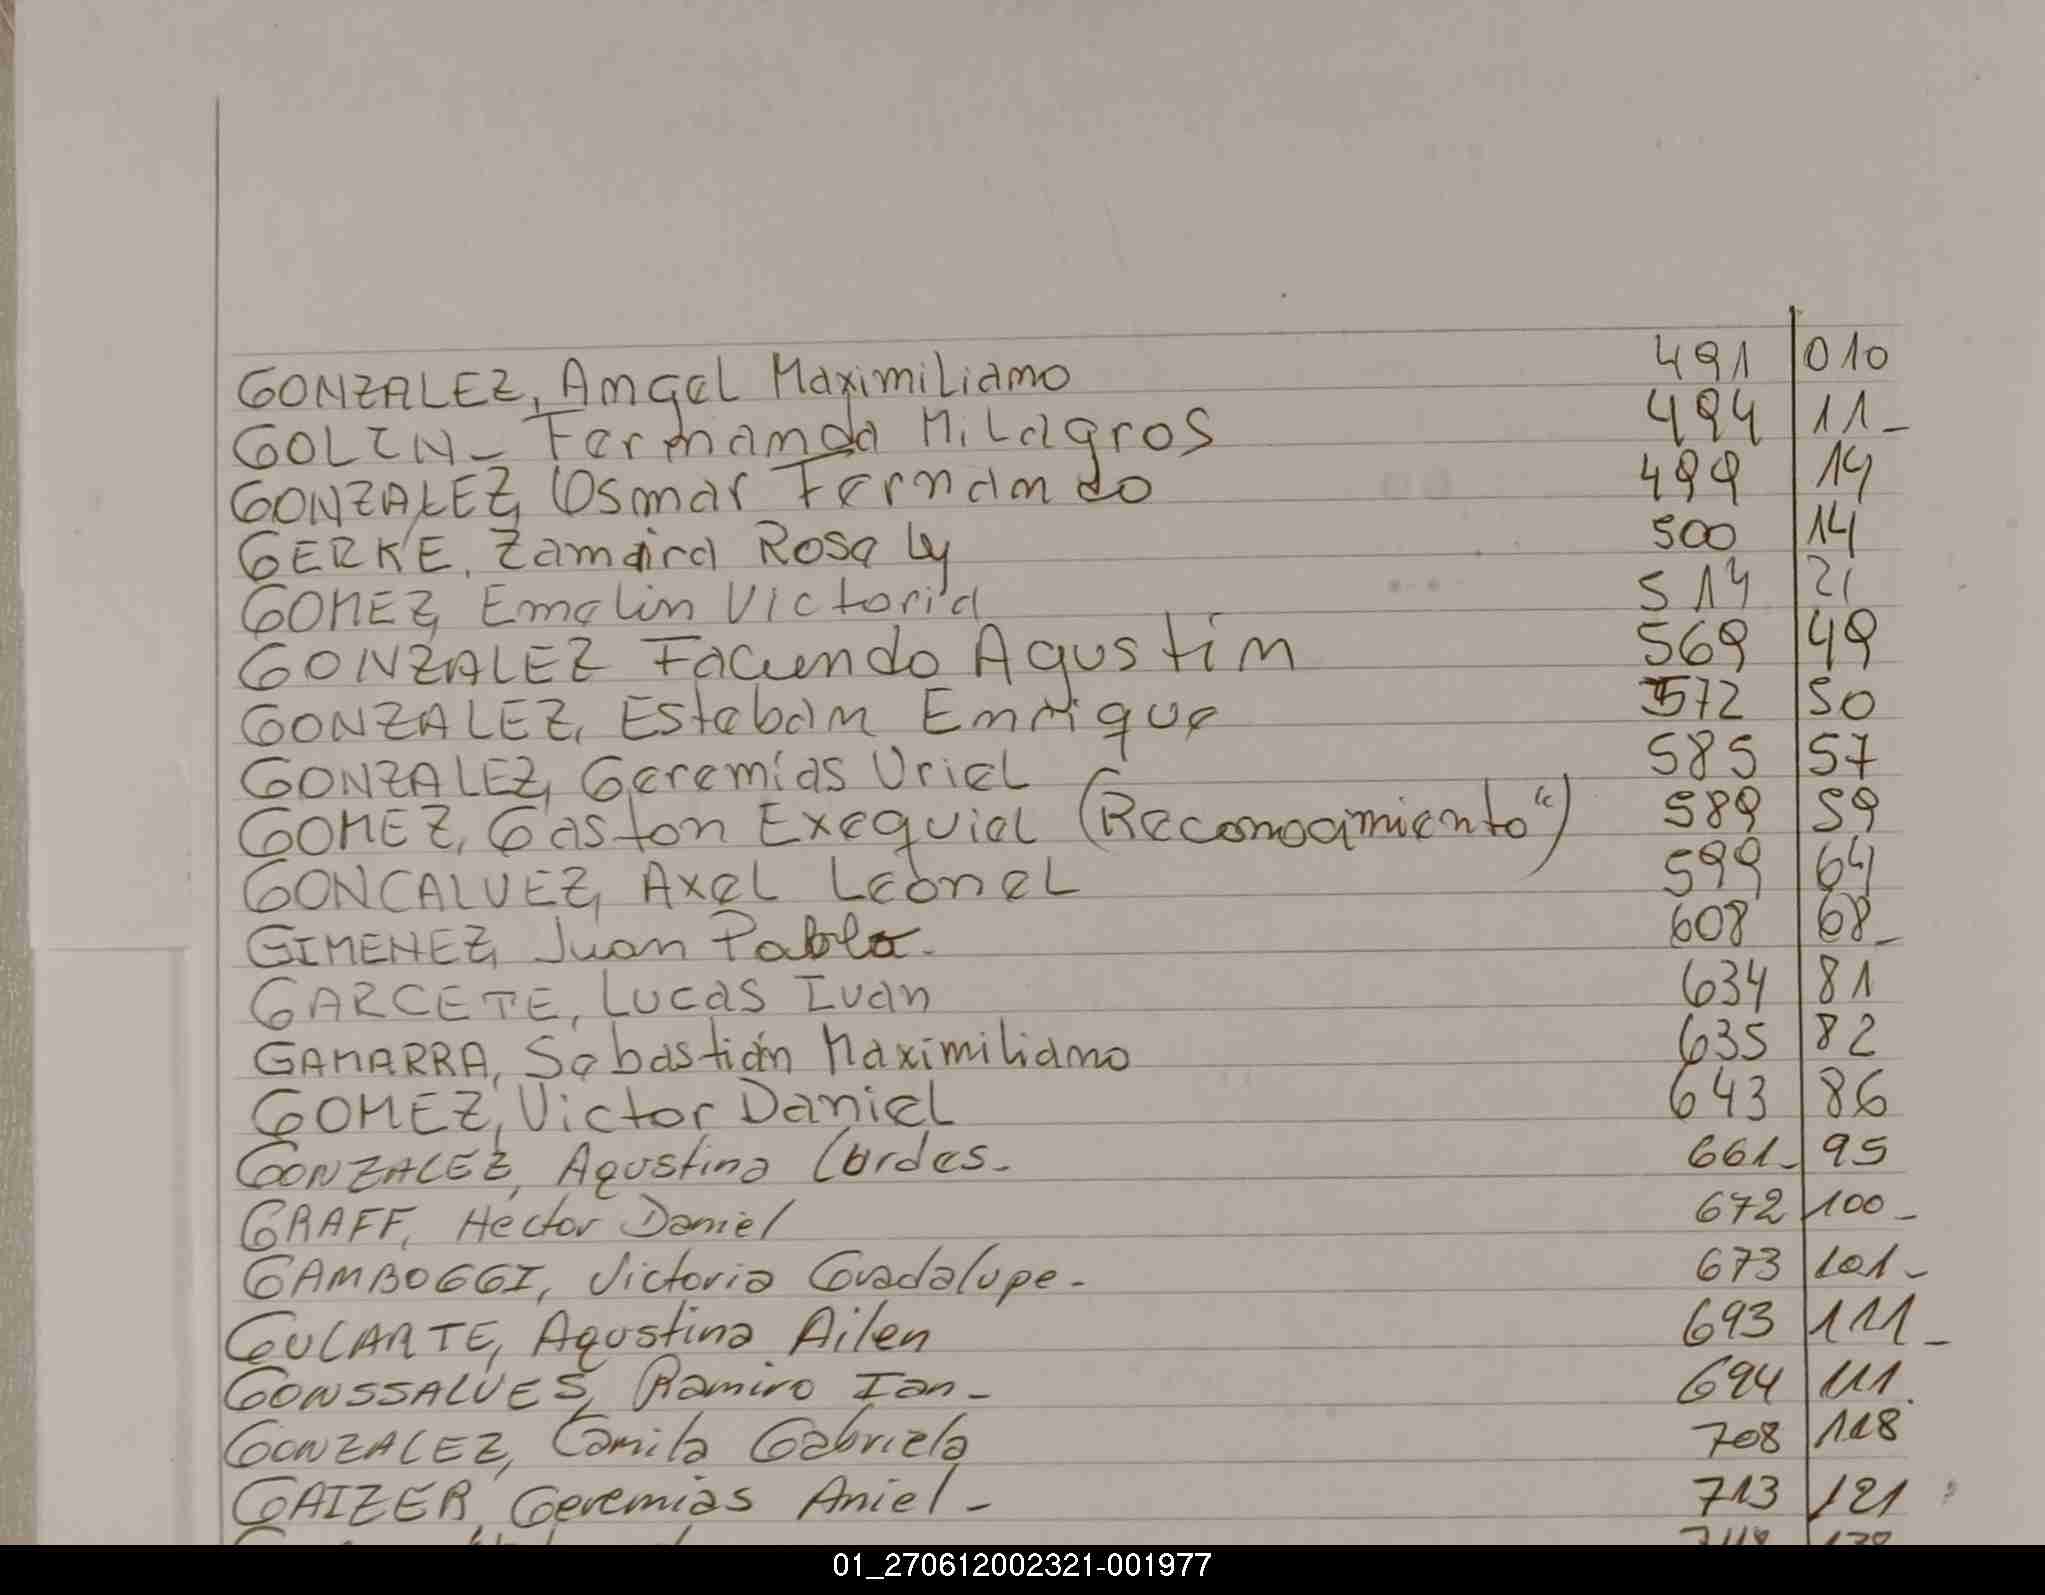 GONZALEZ, Angel Maximiliano 491 010
GOLIN_ Fernanda Milagros 494 11_
GONZALEZ, Osmar Fernando 499 14
GERKE, Zamaira Rosa Ly 500 14
GOMEZ, Emelin Victoria 514 21
GONZALEZ Facundo Agustin 569 49
GONZALEZ, Esteban Enrique 572 50
GONZALEZ, Geremías Uriel 585 57
GOMEZ, Gaston Exequiel (Reconocimiento") 589 59
GONCALVEZ, Axel Leonel 599 64
GIMENEZ, Juan Pablo. 608 68_
GARCETE, Lucas Ivan 634 81
GAMARRA, Sebastián Maximiliano 635 82
GOMEZ, Victor Daniel 643 86
GONZALEZ, Agustina Lurdes_ 661_ 95
GRAFF, Hector Daniel 672 100_
GAMBOGGI, Victoria Guadalupe_ 673 101_
GULARTE, Agustina Ailen 693 111_
GONSSALVES, Ramiro Ian_ 694 111.
GONZALEZ, Camila Gabriela 708 118
GAIZER, Geremias Aniel_ 713 121
01_270612002321-001977